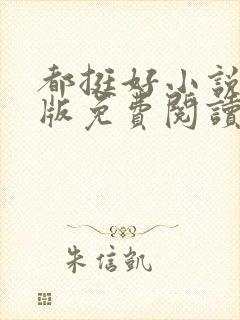 都挺好小說
版免費閱讀
朱信凱